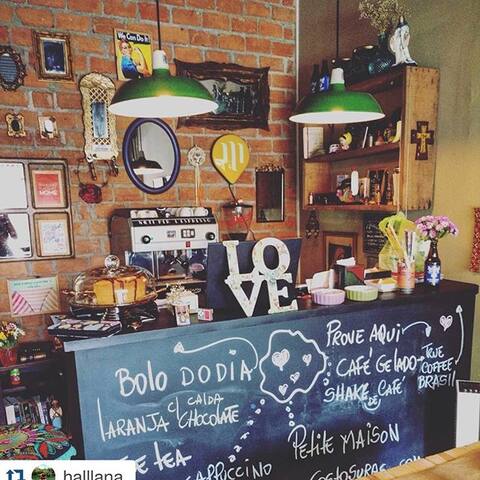 We Can Do It!
LOVE
BOLO DO DIA
C/ CALDA
LARANJA CHOCOLATE
TEA
CAPPUCCINO
PROVE AQUI
CAFÉ GELADO
SHAKE DE CAFÉ
TRUE
COFFEE
BRASIL
PETITE MAISON
GOSTOSURAS
halllana